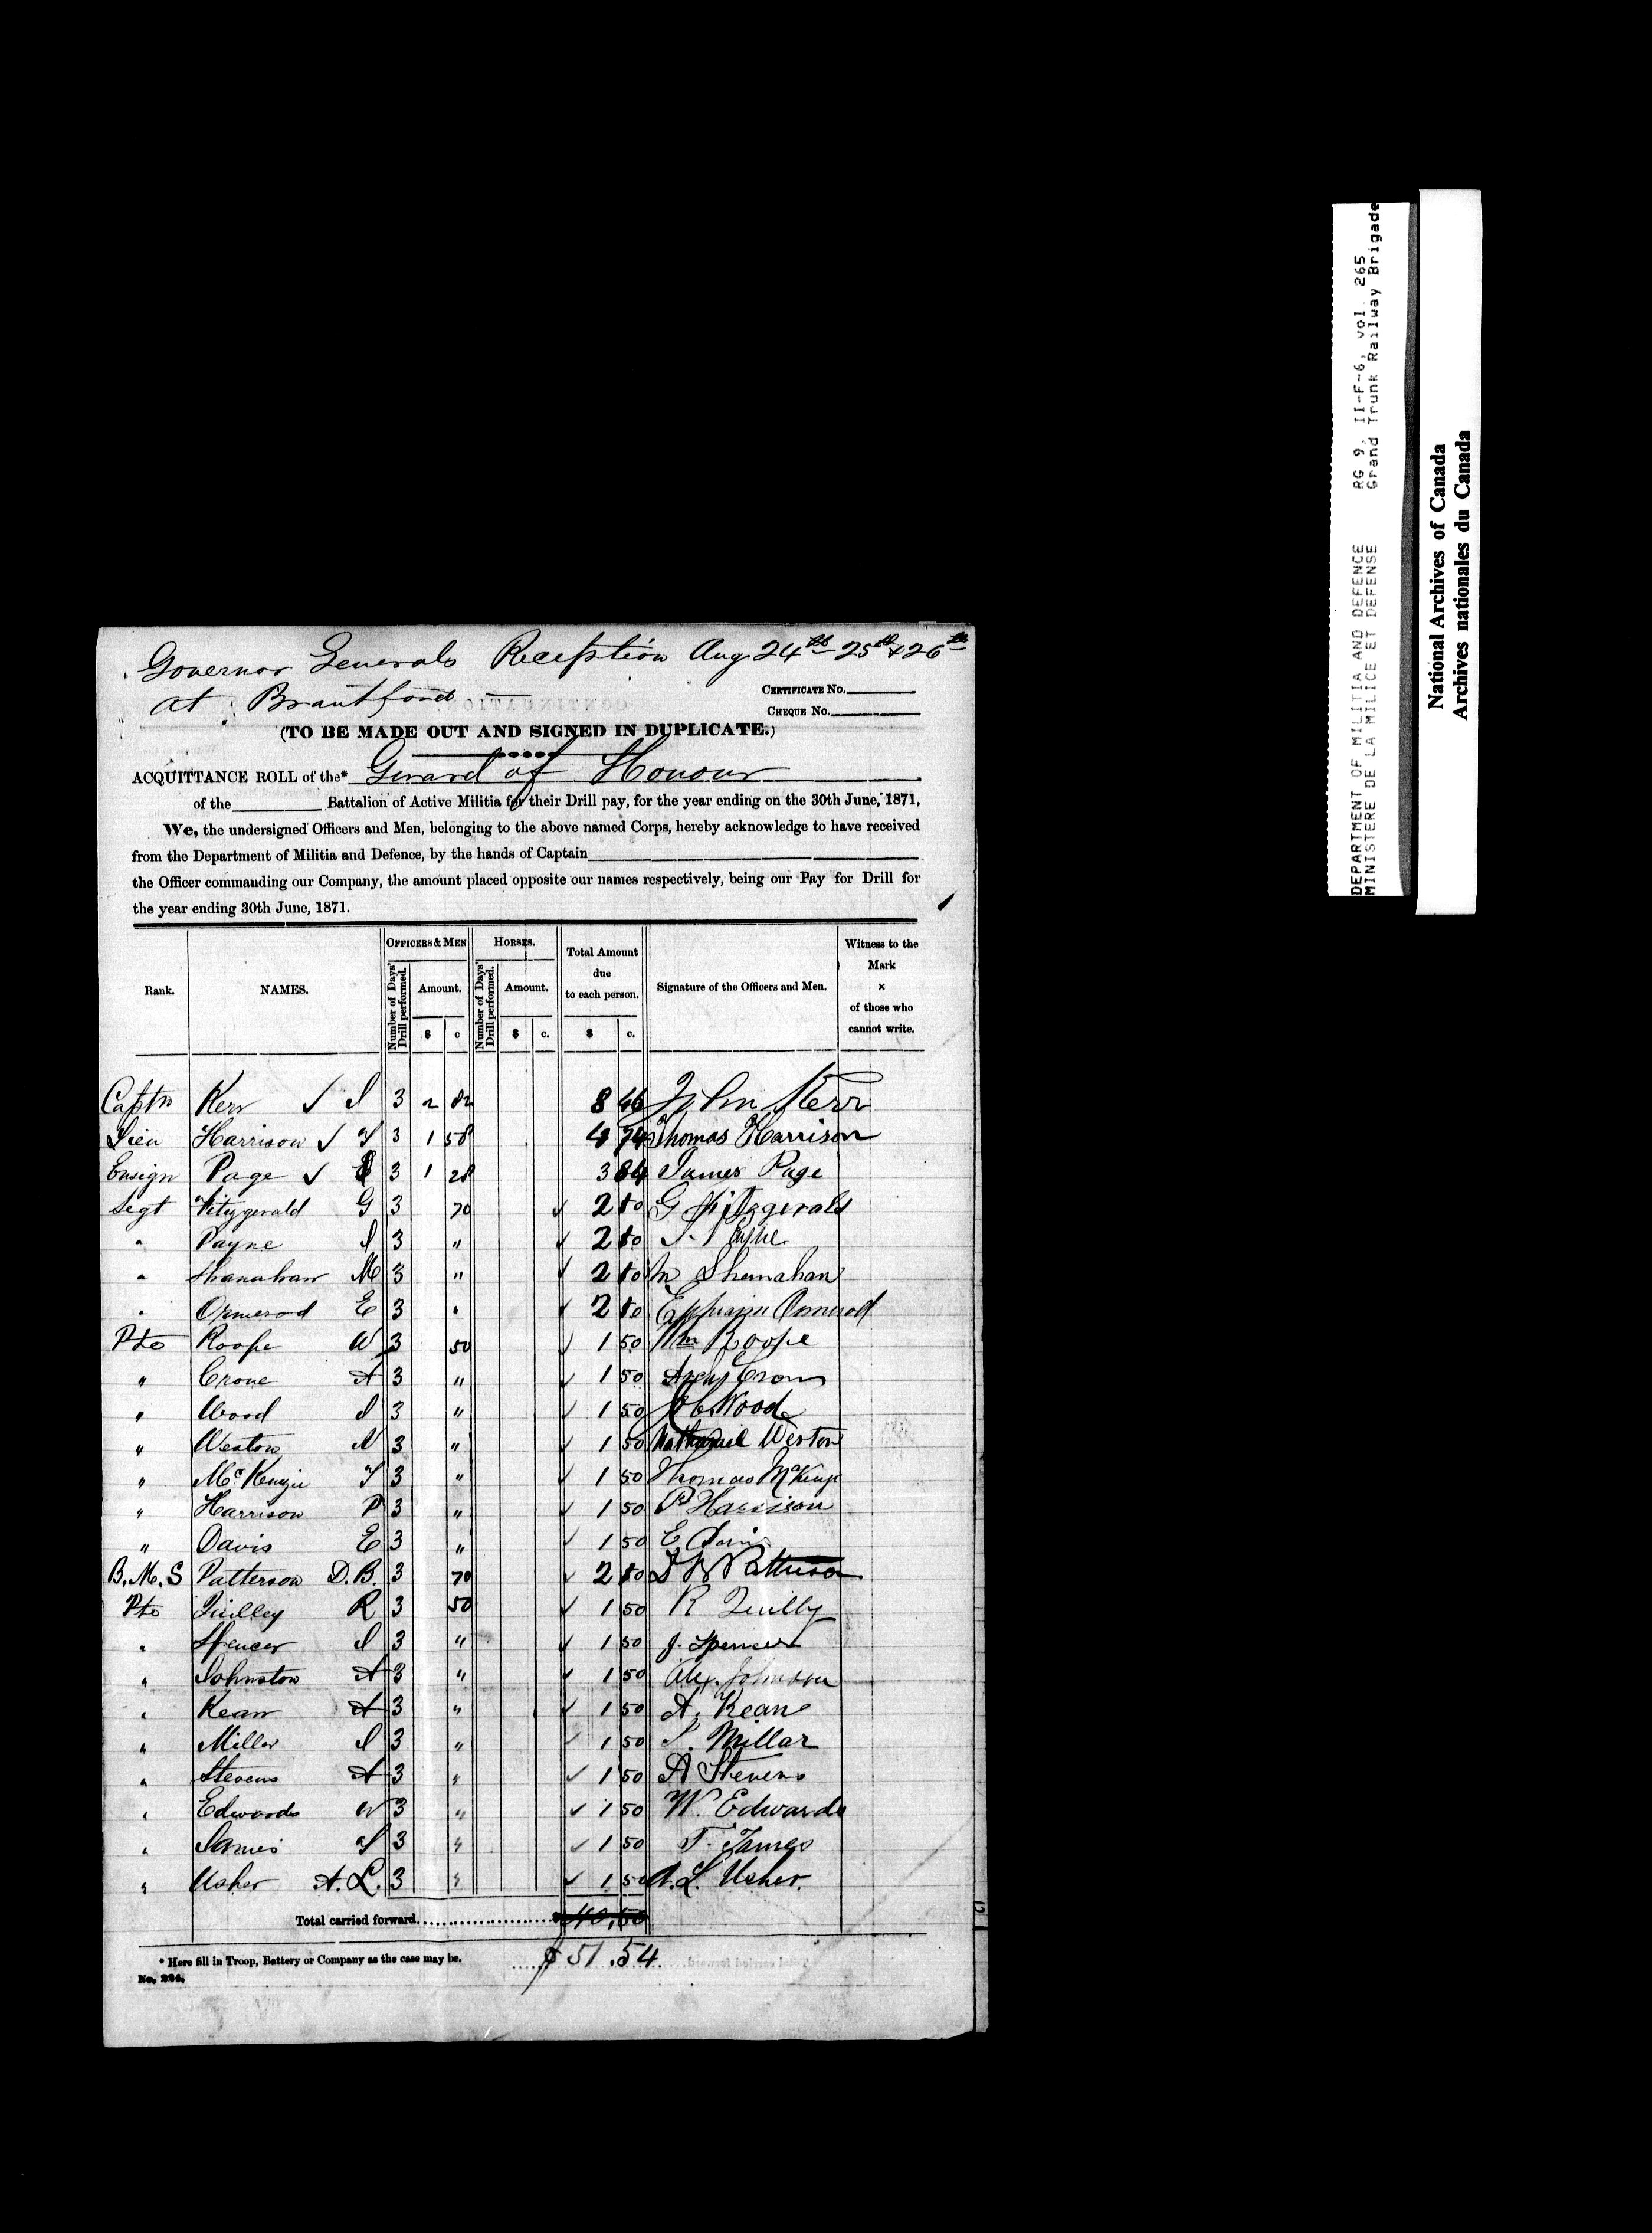 Governor Generals Reception Aug 24th 25th & 26th
at Brantford
CERTIFICATE No.
CHEQUE No.
(TO BE MADE OUT AND SIGNED IN DUPLICATE.)
ACQUITTANCE ROLL of the* Guard of Honour
of the Battalion of Active Militia for their Drill pay, for the year ending on the 30th June, 1871,
We, the undersigned Officers and Men, belonging to the above named Corps, hereby acknowledge to have received
from the Department of Militia and Defence, by the hands of Captain
the Officer commanding our Company, the amount placed opposite our names respectively, being our Pay for Drill for
the year ending 30th June, 1871.
Rank. NAMES. OFFICERS & MEN Number of Days' Drill performed. Amount. $ c HORSES. Number of Days' Drill performed. Amount. $ c. Total Amount due to each person. $ c. Signature of the Officers and Men. Witness to the Mark × of those who cannot write.
Captn Kerr ✓ J 3 2 82 8 46 John Kerr
Lieu Harrison ✓ T 3 1 58 4 74 Thomas Harrison
Ensign Page ✓ 3 1 28 3 84 James Page
Segt Fitzgerald G 3 70 ✓ 2 10 G Fitzgerald
" Payne J 3 " ✓ 2 10 J.
" Shanahan M 3 " ✓ 2 10 M Shanahan
" Ormerod E 3 " ✓ 2 10 Ephraim Ormerod
Pte Roope W 3 50 ✓ 1 50 Wm Roope
" Crone A 3 " ✓ 1 50 Crone
" Wood J 3 " ✓ 1 50 Wood
" Weston N 3 " ✓ 1 50 Nathaniel Weston
" McKenzie T 3 " ✓ 1 50 Thomas McKenzie
" Harrison P 3 " ✓ 1 50 P Harrison
" Davis E 3 " ✓ 1 50 E Davis
B.M.S Patterson D.B. 3 70 ✓ 2 10 D B Patterson
Pte Quilley R 3 50 ✓ 1 50 R Quilly
" Spencer J 3 " ✓ 1 50 J. Spencer
" Johnston A 3 " ✓ 1 50 Alex. Johnston
" Kean A 3 " ✓ 1 50 A. Kean
" Miller J 3 " ✓ 1 50 J. Millar
" Stevens A 3 " ✓ 1 50 A Stevens
" Edwards W 3 " ✓ 1 50 W. Edwards
" James T 3 " ✓ 1 50 T. James
" Usher A.L. 3 " ✓ 1 50 A.L. Usher.
Total carried forward 40,50
$51.54
* Here fill in Troop, Battery or Company as the case may be.
No. 224.
DEPARTMENT OF MILITIA AND DEFENCE RG 9, II-F-6, vol. 265
MINISTERE DE LA MILICE ET DEFENSE Grand Trunk Railway Brigade
National Archives of Canada
Archives nationales du Canada